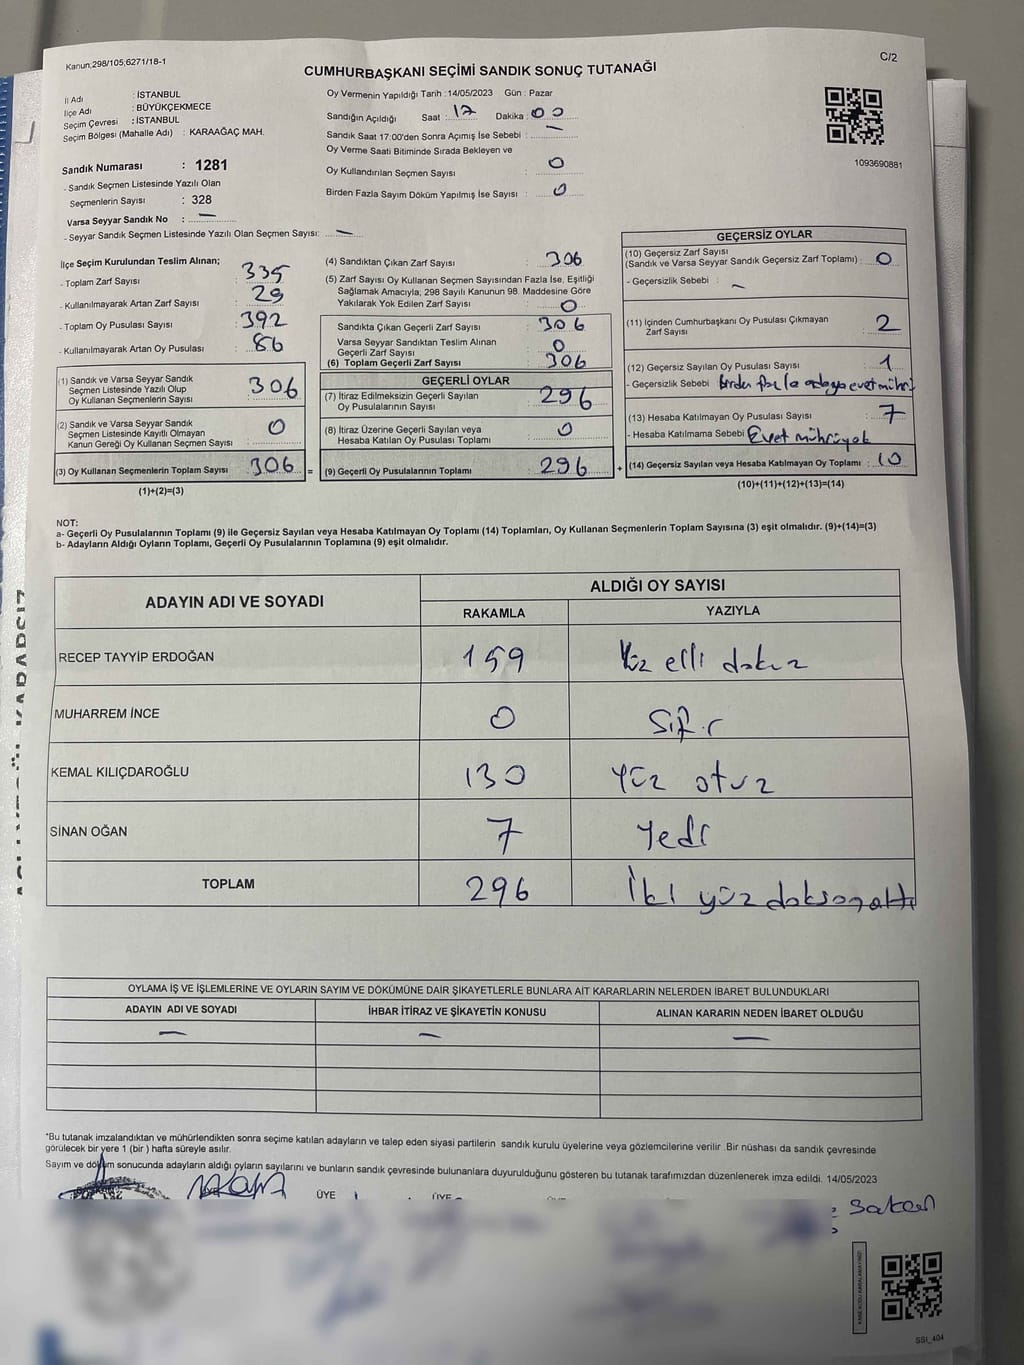 Kanun;298/105;6271/18-1
C/2
CUMHURBAŞKANI SEÇİMİ SANDIK SONUÇ TUTANAĞI
İl Adı : İSTANBUL
İlçe Adı : BÜYÜKÇEKMECE
Seçim Çevresi : İSTANBUL
Seçim Bölgesi (Mahalle Adı) : KARAAĞAÇ MAH.
Sandık Numarası : 1281
- Sandık Seçmen Listesinde Yazılı Olan
Seçmenlerin Sayısı : 328
Varsa Seyyar Sandık No : —
- Seyyar Sandık Seçmen Listesinde Yazılı Olan Seçmen Sayısı: —
Oy Vermenin Yapıldığı Tarih : 14/05/2023 Gün : Pazar
Sandığın Açıldığı Saat : 17 Dakika : 00
Sandık Saat 17:00'den Sonra Açımış İse Sebebi : —
Oy Verme Saati Bitiminde Sırada Bekleyen ve
Oy Kullandırılan Seçmen Sayısı : 0
Birden Fazla Sayım Döküm Yapılmış İse Sayısı : 0
1093690881
İlçe Seçim Kurulundan Teslim Alınan;
- Toplam Zarf Sayısı : 335
- Kullanılmayarak Artan Zarf Sayısı : 29
- Toplam Oy Pusulası Sayısı : 392
- Kullanılmayarak Artan Oy Pusulası : 86
(1) Sandık ve Varsa Seyyar Sandık
Seçmen Listesinde Yazılı Olup
Oy Kullanan Seçmenlerin Sayısı : 306
(2) Sandık ve Varsa Seyyar Sandık
Seçmen Listesinde Kayıtlı Olmayan
Kanun Gereği Oy Kullanan Seçmen Sayısı : 0
(3) Oy Kullanan Seçmenlerin Toplam Sayısı : 306 =
(1)+(2)=(3)
(4) Sandıktan Çıkan Zarf Sayısı : 306
(5) Zarf Sayısı Oy Kullanan Seçmen Sayısından Fazla İse, Eşitliği
Sağlamak Amacıyla; 298 Sayılı Kanunun 98. Maddesine Göre
Yakılarak Yok Edilen Zarf Sayısı : 0
Sandıkta Çıkan Geçerli Zarf Sayısı : 306
Varsa Seyyar Sandıktan Teslim Alınan
Geçerli Zarf Sayısı : 0
(6) Toplam Geçerli Zarf Sayısı : 306
GEÇERLİ OYLAR
(7) İtiraz Edilmeksizin Geçerli Sayılan
Oy Pusulalarının Sayısı : 296
(8) İtiraz Üzerine Geçerli Sayılan veya
Hesaba Katılan Oy Pusulası Toplamı : 0
(9) Geçerli Oy Pusulalarının Toplamı : 296 +
GEÇERSİZ OYLAR
(10) Geçersiz Zarf Sayısı
(Sandık ve Varsa Seyyar Sandık Geçersiz Zarf Toplamı) : 0
- Geçersizlik Sebebi : —
(11) İçinden Cumhurbaşkanı Oy Pusulası Çıkmayan
Zarf Sayısı : 2
(12) Geçersiz Sayılan Oy Pusulası Sayısı : 1
- Geçersizlik Sebebi : Birden fazla adaya evet mührü
(13) Hesaba Katılmayan Oy Pusulası Sayısı : 7
- Hesaba Katılmama Sebebi : Evet mührü yok
(14) Geçersiz Sayılan veya Hesaba Katılmayan Oy Toplamı : 10
(10)+(11)+(12)+(13)=(14)
NOT:
a- Geçerli Oy Pusulalarının Toplamı (9) ile Geçersiz Sayılan veya Hesaba Katılmayan Oy Toplamı (14) Toplamları, Oy Kullanan Seçmenlerin Toplam Sayısına (3) eşit olmalıdır. (9)+(14)=(3)
b- Adayların Aldığı Oyların Toplamı, Geçerli Oy Pusulalarının Toplamına (9) eşit olmalıdır.
ADAYIN ADI VE SOYADI
ALDIĞI OY SAYISI
RAKAMLA YAZIYLA
RECEP TAYYİP ERDOĞAN 159 Yüz elli dokuz
MUHARREM İNCE 0 Sıfır
KEMAL KILIÇDAROĞLU 130 Yüz otuz
SİNAN OĞAN 7 Yedi
TOPLAM 296 İki yüz doksan altı
OYLAMA İŞ VE İŞLEMLERİNE VE OYLARIN SAYIM VE DÖKÜMÜNE DAİR ŞİKAYETLERLE BUNLARA AİT KARARLARIN NELERDEN İBARET BULUNDUKLARI
ADAYIN ADI VE SOYADI İHBAR İTİRAZ VE ŞİKAYETİN KONUSU ALINAN KARARIN NEDEN İBARET OLDUĞU
— — —
*Bu tutanak imzalandıktan ve mühürlendikten sonra seçime katılan adayların ve talep eden siyasi partilerin sandık kurulu üyelerine veya gözlemcilerine verilir. Bir nüshası da sandık çevresinde
görülecek bir yere 1 (bir ) hafta süreyle asılır.
Sayım ve döküm sonucunda adayların aldığı oyların sayılarını ve bunların sandık çevresinde bulunanlara duyurulduğunu gösteren bu tutanak tarafımızdan düzenlenerek imza edildi. 14/05/2023
ÜYE
SSİ_404